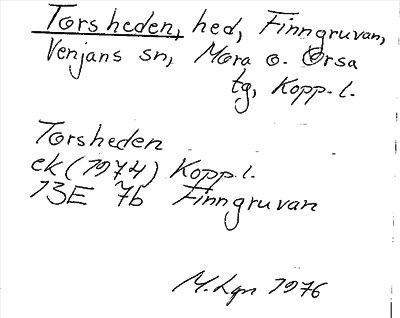 Torsheden, hed, Finngruvan,
Venjans sn, Mora o. Orsa
tg, Kopp. l.
Torsheden
ek (1974) Kopp. l.
13E 7b Finngruvan
M. Lgn 1976